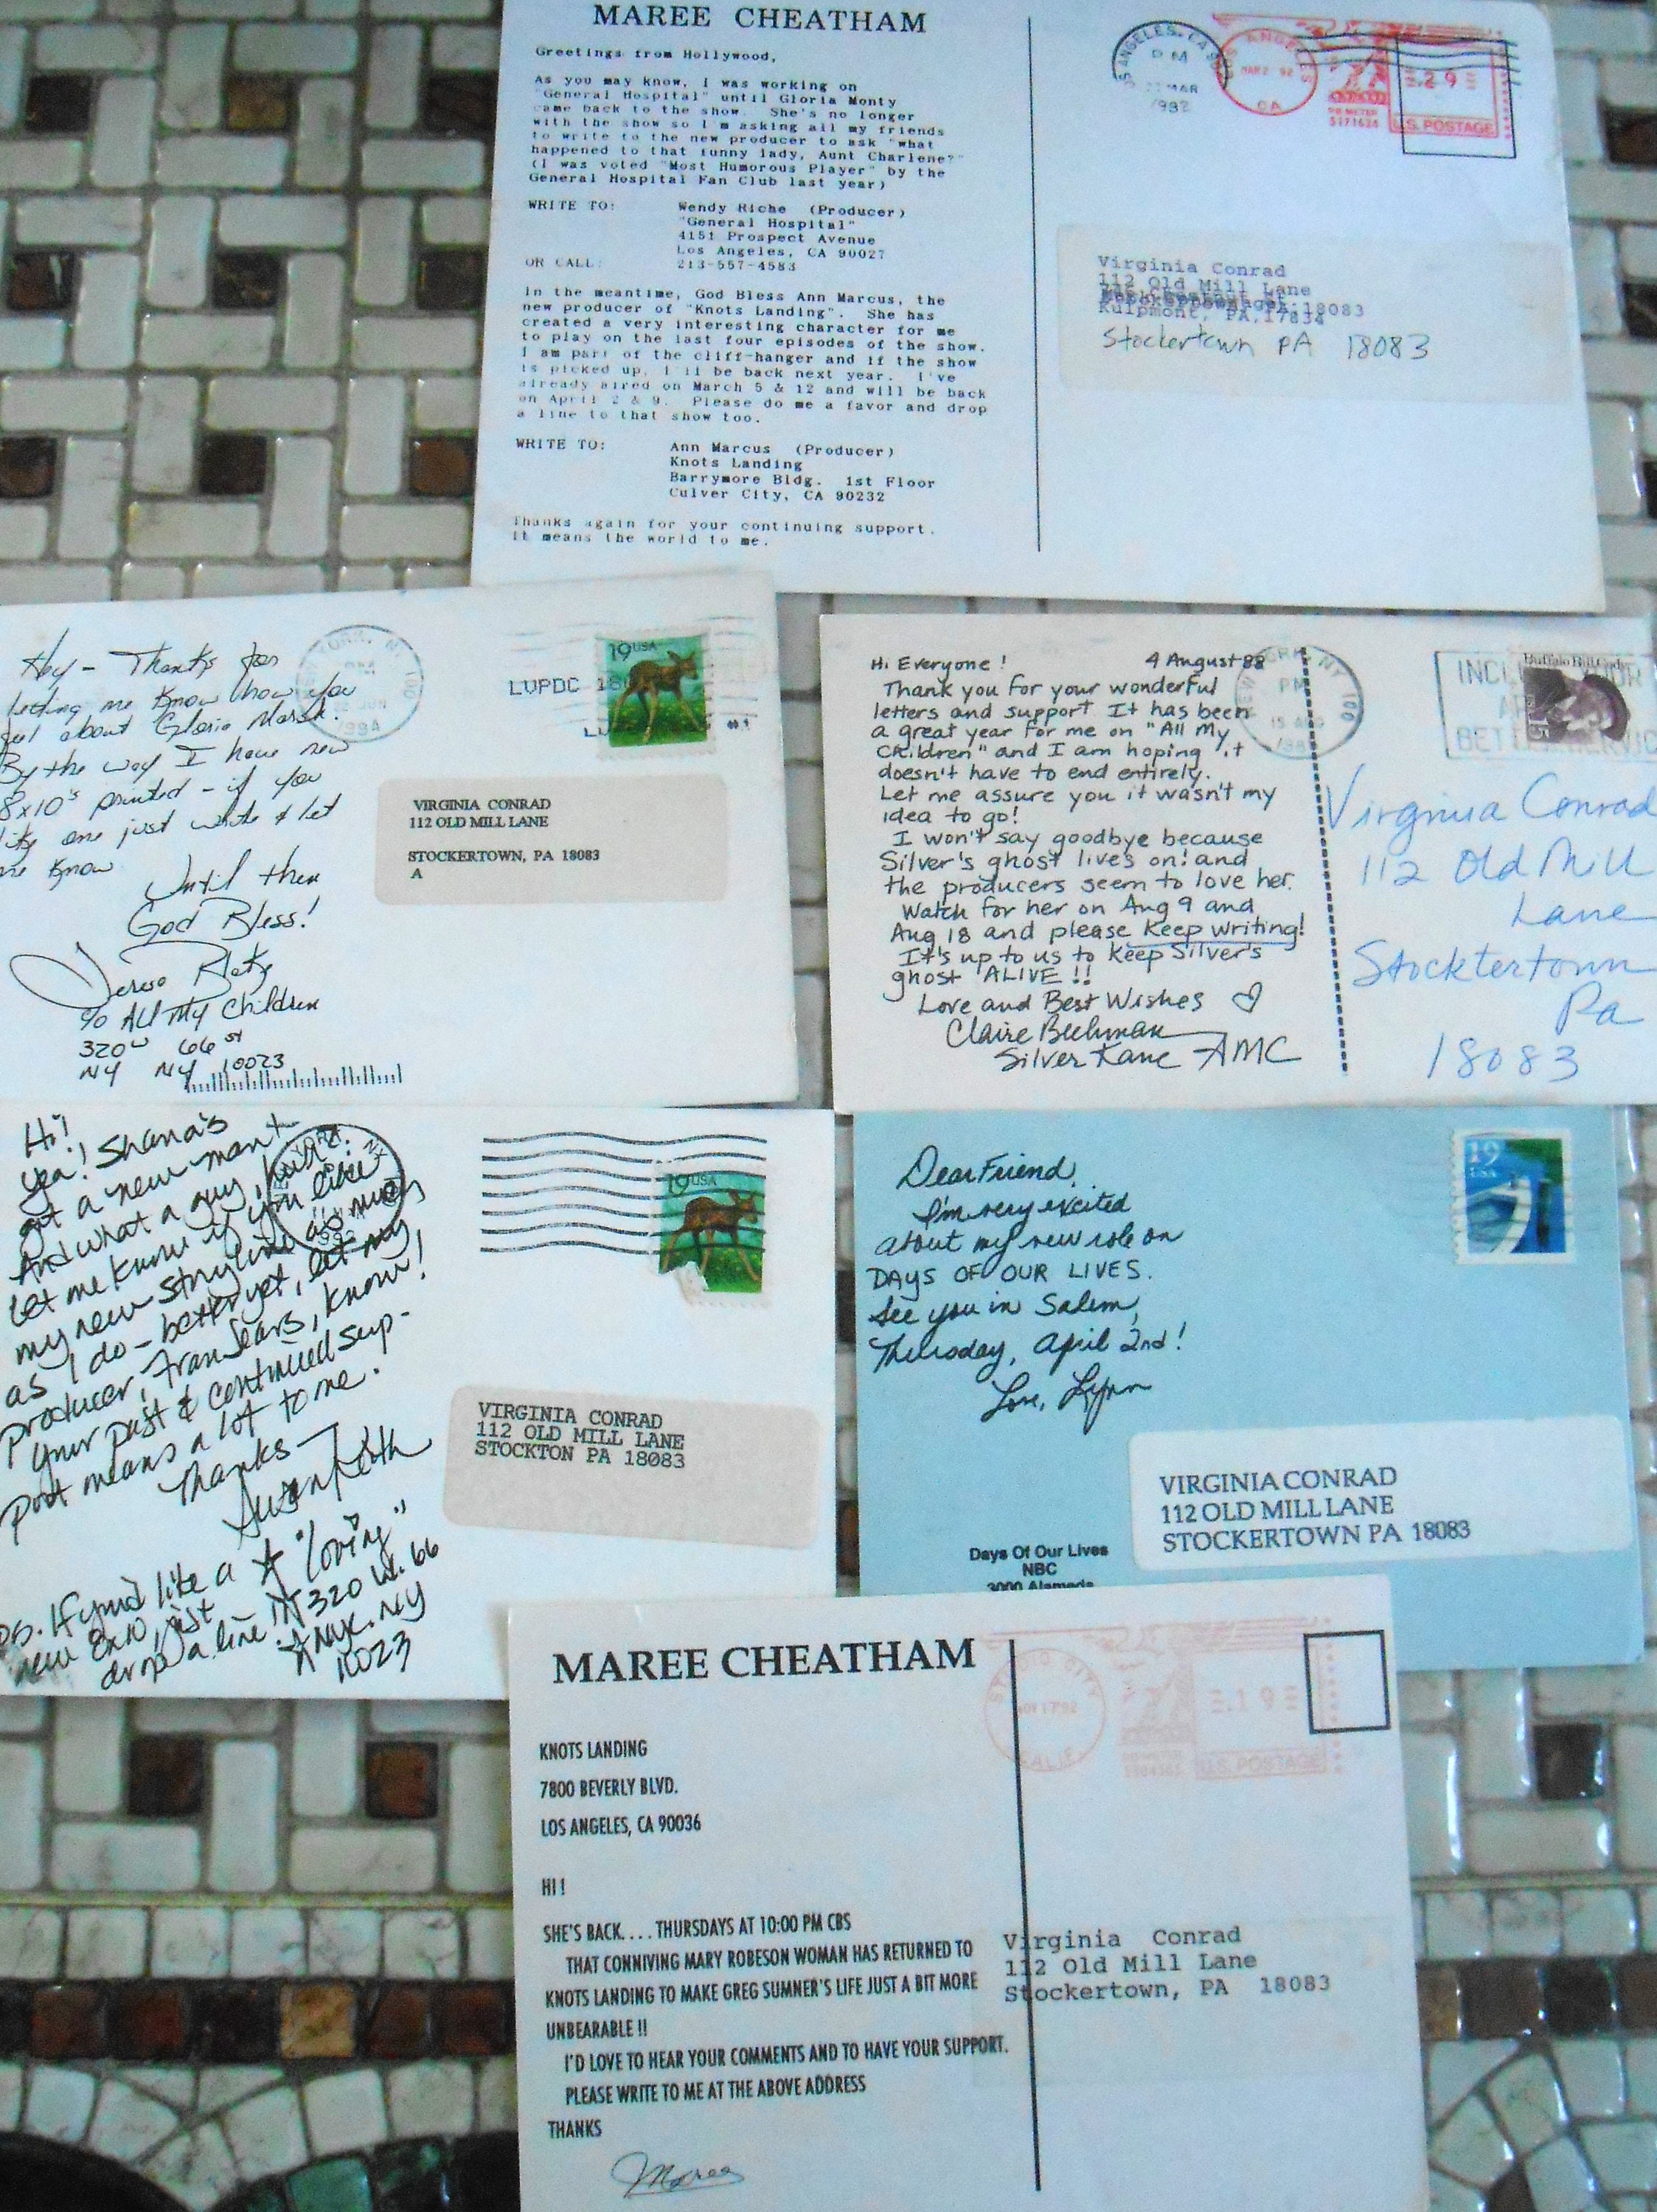 MAREE CHEATHAM
Greetings from Hollywood,
As you may know, I was working on
"General Hospital" until Gloria Monty
came back to the show. She's no longer
with the show so I'm asking all my friends
to write to the new producer to ask "what
happened to that funny lady, Aunt Charlene?"
(I was voted "Most Humorous Player" by the
General Hospital Fan Club last year)
WRITE TO: Wendy Riche (Producer)
"General Hospital"
4151 Prospect Avenue
Los Angeles, CA 90027
OR CALL: 213-557-4583
In the meantime, God Bless Ann Marcus, the
new producer of "Knots Landing". She has
created a very interesting character for me
to play on the last four episodes of the show.
I am part of the cliff-hanger and if the show
is picked up, I'll be back next year. I've
already aired on March 5 & 12 and will be back
on April 2 & 9. Please do me a favor and drop
a line to that show too.
WRITE TO: Ann Marcus (Producer)
Knots Landing
Barrymore Bldg. 1st Floor
Culver City, CA 90232
Thanks again for your continuing support.
It means the world to me.
LOS ANGELES, CA
PM
MAR
1992
LOS ANGELES
MAR 2 92
CA
.29
U.S. POSTAGE
Virginia Conrad
112 Old Mill Lane
Kulpmont, PA, 17834
Stockertown PA 18083
Hey - Thanks for
letting me know how you
feel about Gloria Marsh.
By the way I have new
8x10's printed - if you
like one just write & let
me know
Until then
God Bless!
Teresa Blake
c/o All My Children
320 W 66 st
NY NY 10023
1994
LVPDC
19 USA
#1
VIRGINIA CONRAD
112 OLD MILL LANE
STOCKERTOWN, PA 18083
A
Hi Everyone! 4 August 88
Thank you for your wonderful
letters and support It has been
a great year for me on "All My
Children" and I am hoping it
doesn't have to end entirely.
Let me assure you it wasn't my
idea to go!
I won't say goodbye because
Silver's ghost lives on! and
the producers seem to love her.
Watch for her on Aug 9 and
Aug 18 and please Keep writing!
It's up to us to Keep Silver's
ghost ALIVE!!
Love and Best Wishes
Claire Beckman
Silver Kane AMC
NY 100
PM
Buffalo Bill Cody
15
Virginia Conrad
112 Old Mill
Lane
Stocktertown
Pa
18083
Hi!
Yea! Shana's
got a new man!
And what a guy, huh?
Let me know if you like
my new storyline as much
as I do - better yet, let my
producer, Fran Sears, know!
Your past & continued sup-
port means a lot to me.
Thanks -
Susan Keith
P.S. If you'd like a
new 8x10, just
drop a line
"Loving"
320 W. 66
NYC. NY
10023
19 USA
VIRGINIA CONRAD
112 OLD MILL LANE
STOCKTON PA 18083
Dear Friend,
I'm very excited
about my new role on
DAYS OF OUR LIVES.
See you in Salem,
Thursday, April 2nd!
Love, Lynn
19
USA
VIRGINIA CONRAD
112 OLD MILL LANE
STOCKERTOWN PA 18083
Days Of Our Lives
NBC
3000 Alameda
MAREE CHEATHAM
KNOTS LANDING
7800 BEVERLY BLVD.
LOS ANGELES, CA 90036
HI!
SHE'S BACK.... THURSDAYS AT 10:00 PM CBS
THAT CONNIVING MARY ROBESON WOMAN HAS RETURNED TO
KNOTS LANDING TO MAKE GREG SUMNER'S LIFE JUST A BIT MORE
UNBEARABLE !!
I'D LOVE TO HEAR YOUR COMMENTS AND TO HAVE YOUR SUPPORT.
PLEASE WRITE TO ME AT THE ABOVE ADDRESS
THANKS
Maree
STUDIO CITY
NOV 17 92
CALIF
.19
U.S. POSTAGE
Virginia Conrad
112 Old Mill Lane
Stockertown, PA 18083